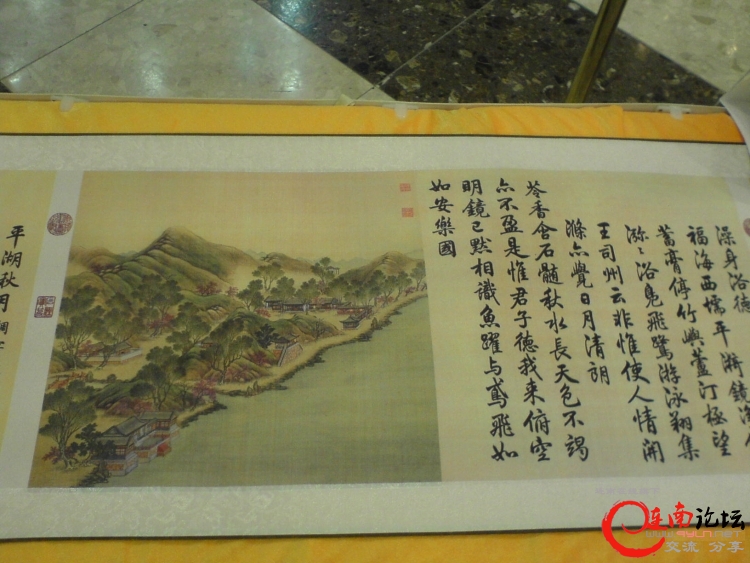 澡身浴德
福海西壖平漪鏡
蓄膏渟竹嶼蘆汀極望
瀰〻浴鳧飛鷺游泳翔集
王司州云非惟使人情開
滌亦覺日月清朗
苓香含石髓秋水長天色不竭
亦不盈是惟君子德我來俯空
明鏡已默相識魚躍與鳶飛如
如安樂國
平湖秋月 調
连南论坛
www.99LN.NET
交流 分享